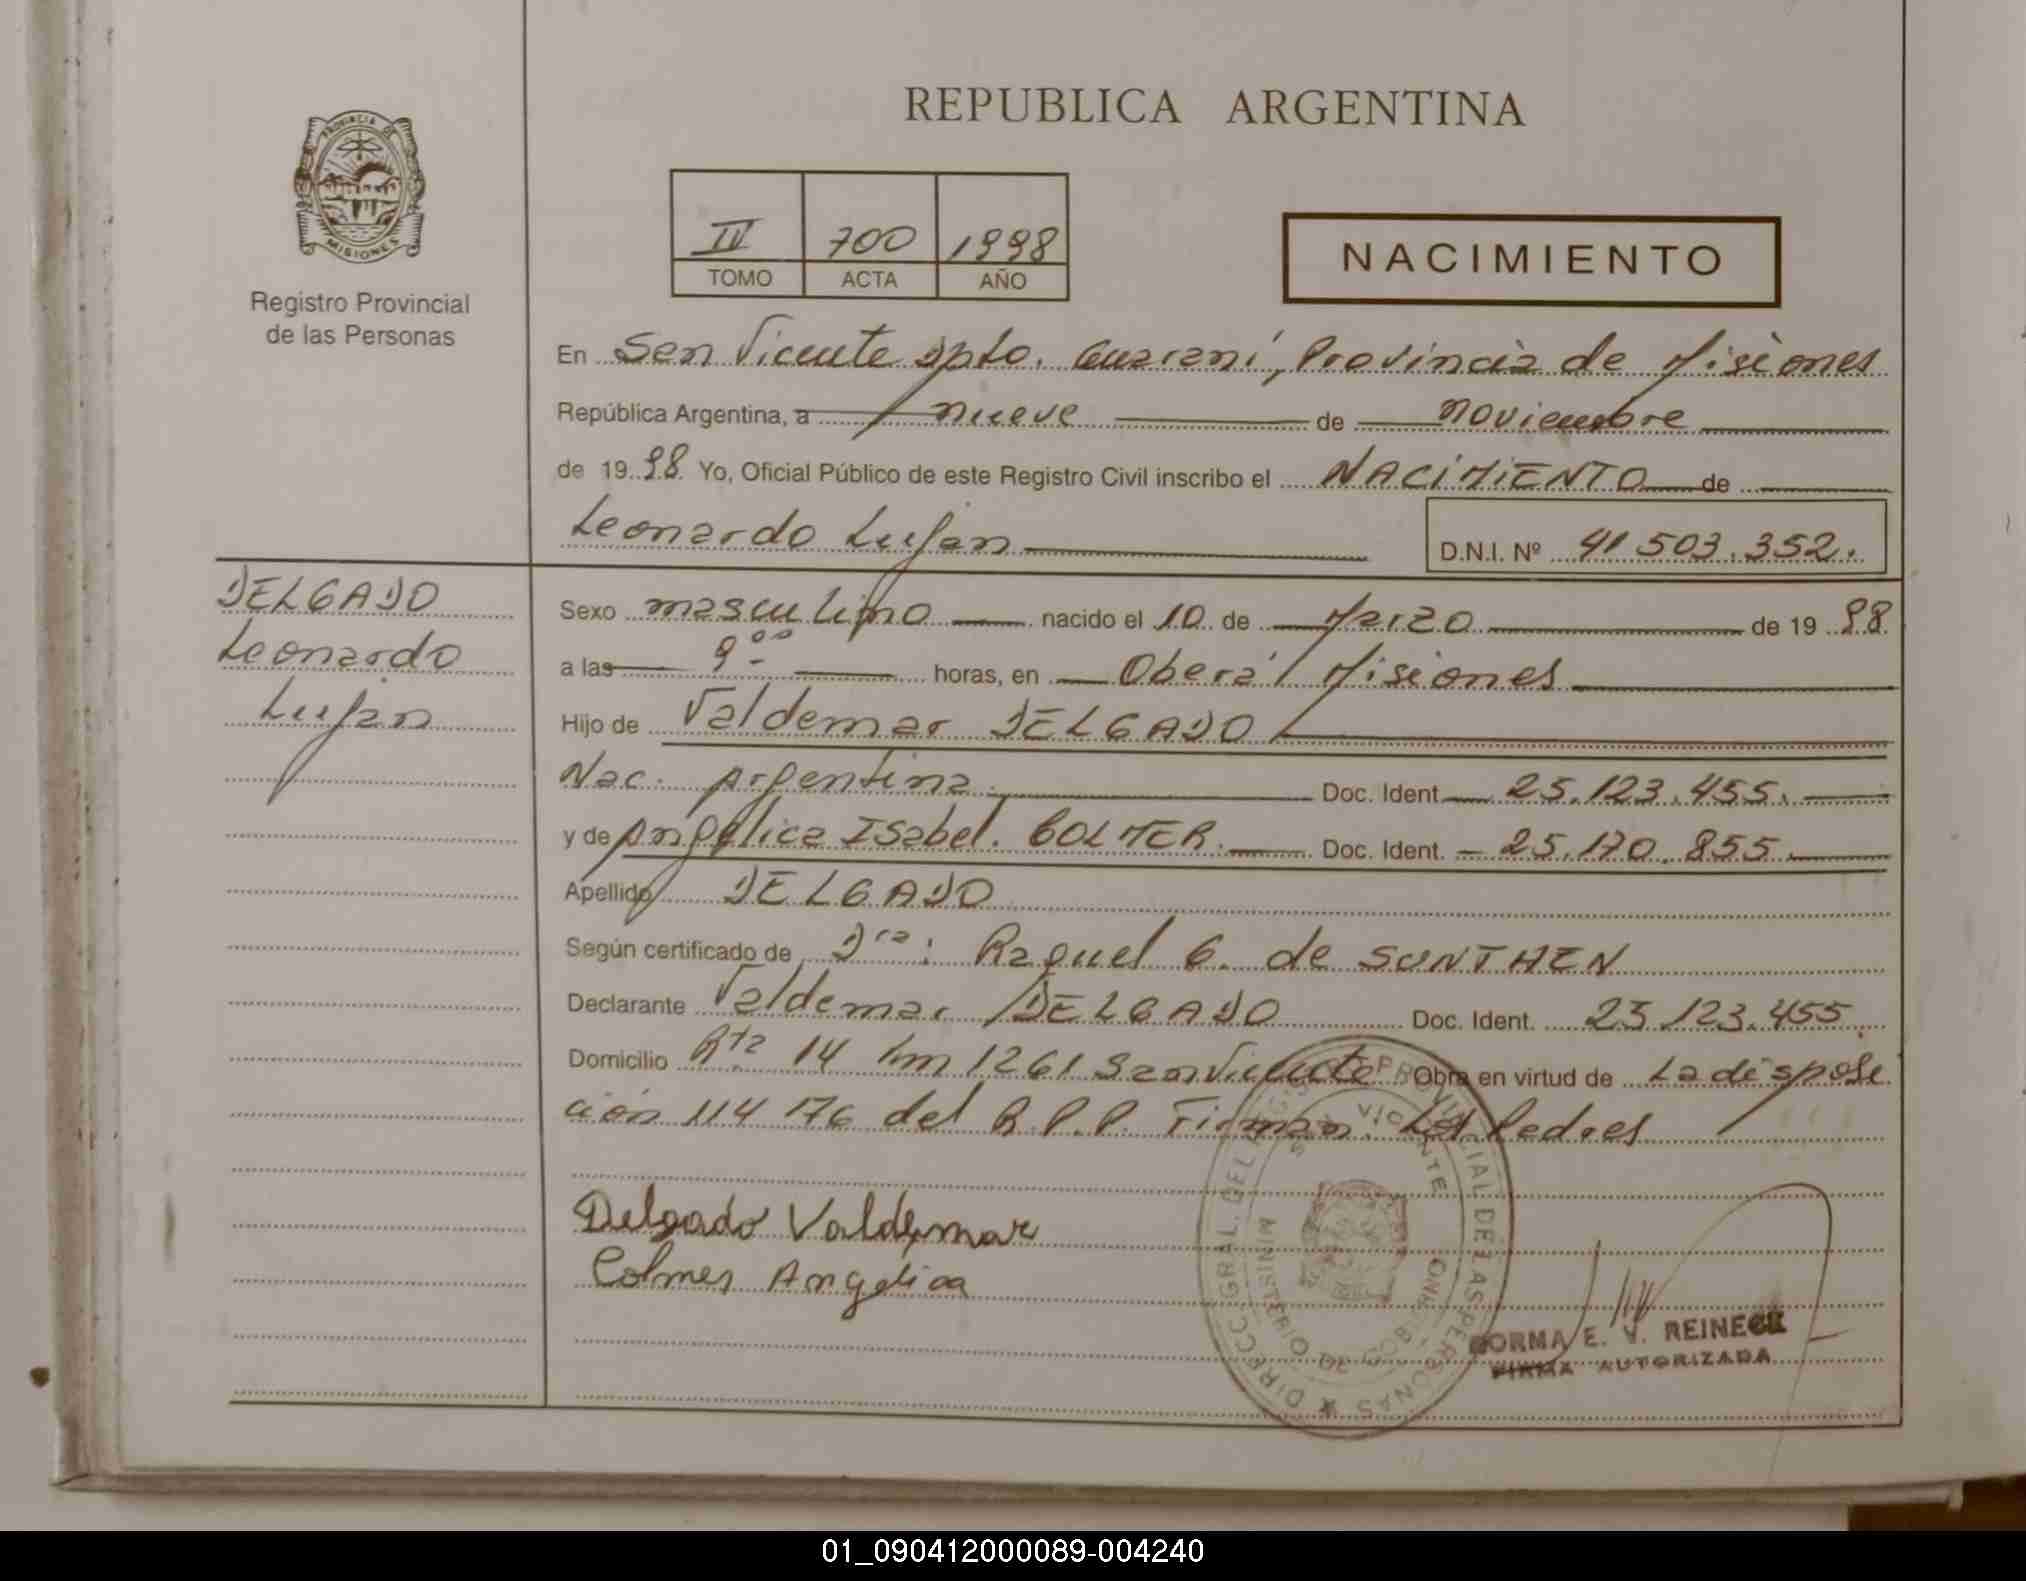 REPUBLICA ARGENTINA
PROVINCIA DE
MISIONES
Registro Provincial
de las Personas
IV 700 1998
TOMO ACTA AÑO
NACIMIENTO
En San Vicente Dpto. Guaraní, Provincia de Misiones
República Argentina, a nueve de noviembre
de 1998 Yo, Oficial Público de este Registro Civil inscribo el NACIMIENTO de
Leonardo Luján
D.N.I. Nº 41 503.352.
DELGADO
Leonardo
Luján
Sexo masculino nacido el 10 de Marzo de 1998
a las 9 00 horas, en Oberá Misiones
Hijo de Valdemar DELGADO
Nac. Argentina Doc. Ident. 25.123.455.
y de Angélica Isabel. COLMER. Doc. Ident. 25.170.855.
Apellido DELGADO
Según certificado de Dra: Raquel G. de SUNTHEN
Declarante Valdemar DELGADO Doc. Ident. 25.123.455.
Domicilio Rta 14 km 1261 San Vicente Obra en virtud de La disposi
ción 114 176 del R.P.P. Firman Los Padres
Delgado Valdemar
Colmer Angelica
DIRECC. GRAL. DEL REGISTRO PROVINCIAL DE LAS PERSONAS
SAN VICENTE
MINISTERIO DE GOBIERNO
NORMA E. V. REINECK
FIRMA AUTORIZADA
01_090412000089-004240